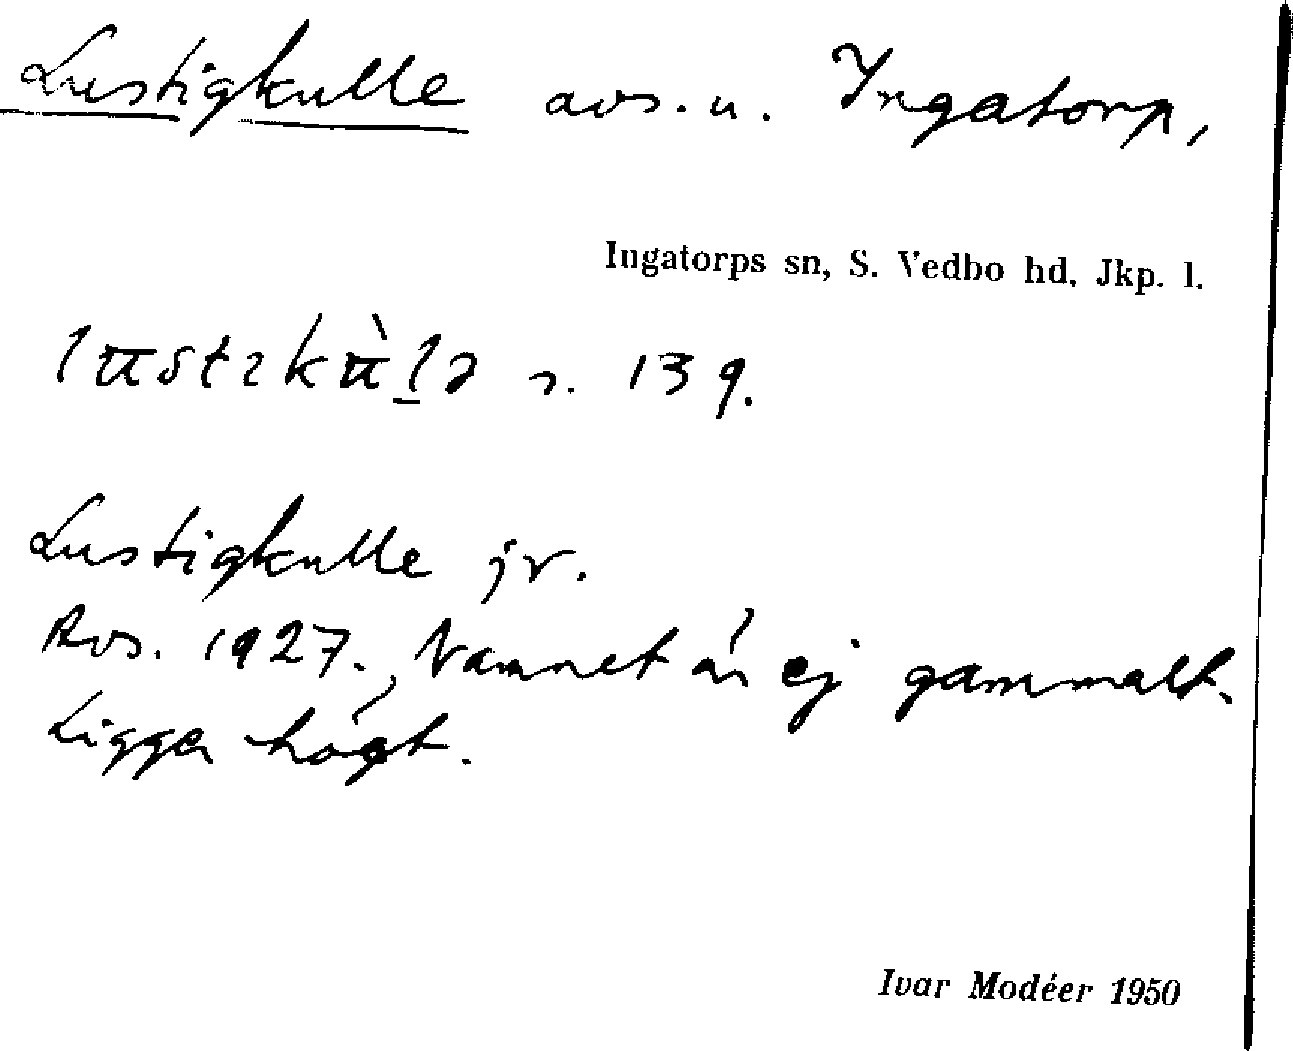 Lustigkulle avs. u. Ingatorp,
Ingatorps sn, S. Vedbo hd, Jkp. l.
s. 139.
Lustigkulle jr.
Avs. 1927. Namnet är ej gammalt.
Ligger högt.
Ivar Modéer 1950